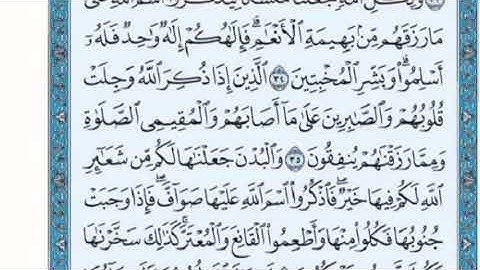 وَلِكُلِّ أُمَّةٍ جَعَلْنَا مَنسَكًا لِّيَذْكُرُوا۟ ٱسْمَ ٱللَّهِ عَلَىٰ
مَا رَزَقَهُم مِّنۢ بَهِيمَةِ ٱلْأَنْعَٰمِ ۗ فَإِلَٰهُكُمْ إِلَٰهٌ وَٰحِدٌ فَلَهُۥٓ
أَسْلِمُوا۟ ۗ وَبَشِّرِ ٱلْمُخْبِتِينَ ٣٤ ٱلَّذِينَ إِذَا ذُكِرَ ٱللَّهُ وَجِلَتْ
قُلُوبُهُمْ وَٱلصَّٰبِرِينَ عَلَىٰ مَآ أَصَابَهُمْ وَٱلْمُقِيمِى ٱلصَّلَوٰةِ
وَمِمَّا رَزَقْنَٰهُمْ يُنفِقُونَ ٣٥ وَٱلْبُدْنَ جَعَلْنَٰهَا لَكُم مِّن شَعَٰٓئِرِ
ٱللَّهِ لَكُمْ فِيهَا خَيْرٌ ۖ فَٱذْكُرُوا۟ ٱسْمَ ٱللَّهِ عَلَيْهَا صَوَآفَّ ۖ فَإِذَا وَجَبَتْ
جُنُوبُهَا فَكُلُوا۟ مِنْهَا وَأَطْعِمُوا۟ ٱلْقَانِعَ وَٱلْمُعْتَرَّ ۚ كَذَٰلِكَ سَخَّرْنَٰهَا